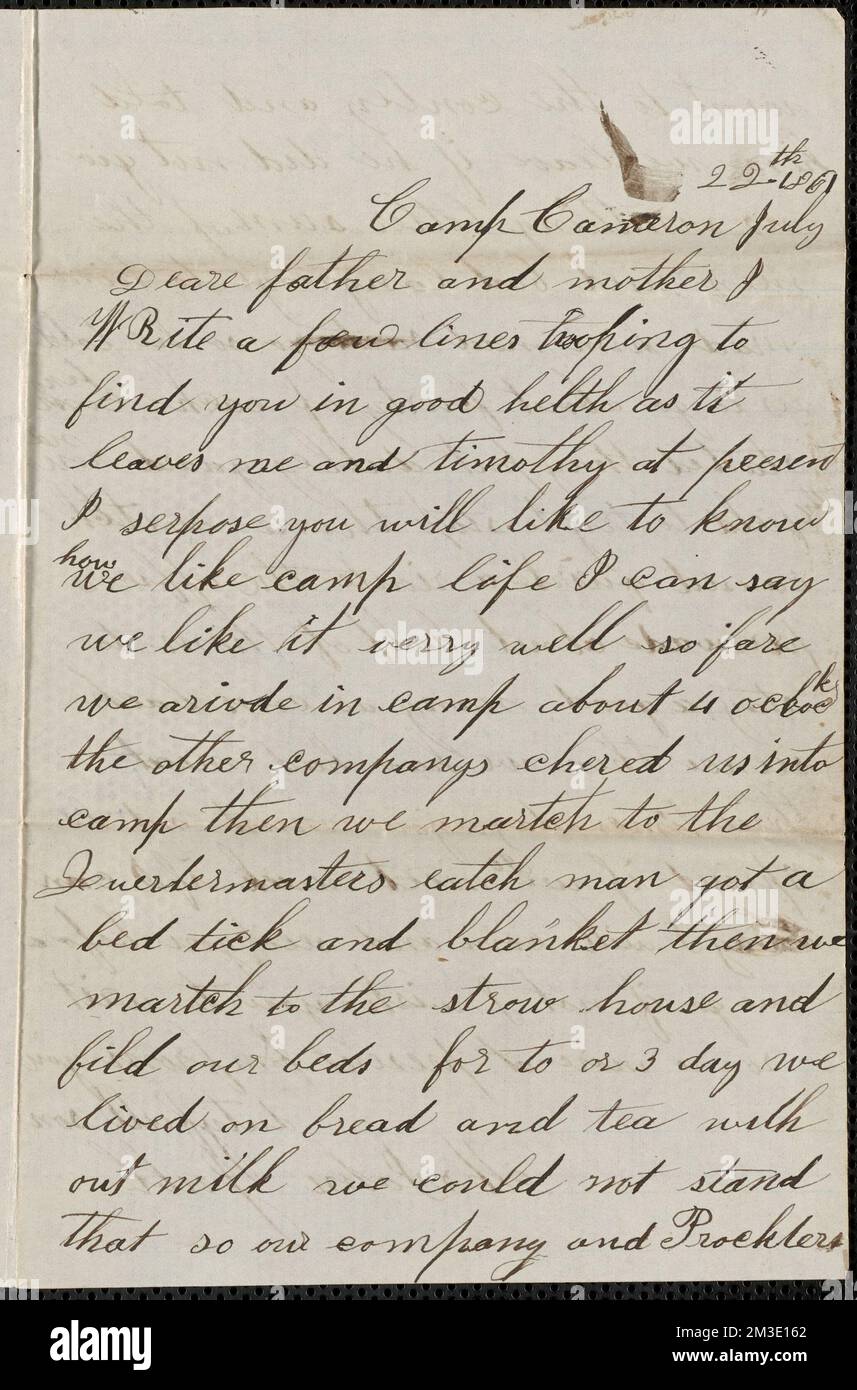 22th 1861
Camp Cameron July
Deare father and mother I
WRite a few lines hoping to
find you in good helth as it
leaves me and timothy at present
I serpose you will like to know
how
we like camp life I can say
we like it verry well so fare
we arivde in camp about 4 oclock
the other companys chered us into
camp then we martch to the
Quertermasters eatch man got a
bed tick and blanket then we
martch to the strow house and
fild our beds for to or 3 day we
lived on bread and tea with
out milk we could not stand
that so our company and Prockters
alamy
Image ID: 2M3E162
www.alamy.com